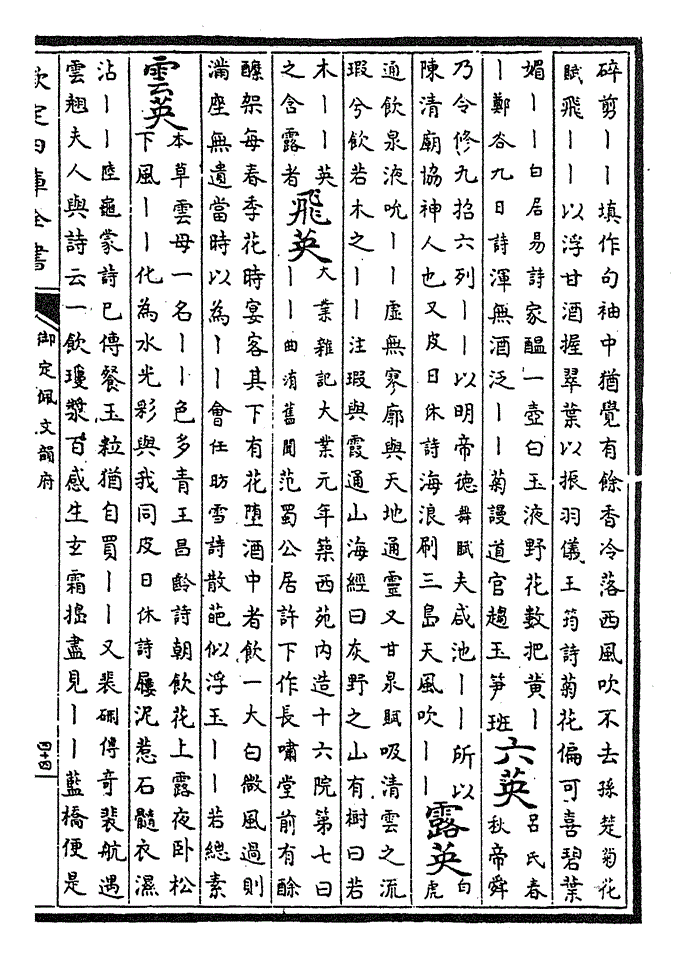 碎剪丨丨填作句袖中猶覺有餘香冷落西風吹不去孫楚菊花
賦飛丨丨以浮甘酒握翠葉以振羽儀王筠詩菊花偏可喜碧葉
媚丨丨白居易詩家醖一壺白玉液野花數把黄丨
丨鄭谷九日詩渾無酒泛丨丨菊謾道官趨玉笋班
六英
吕氏春
秋帝舜
乃令修九招六列丨丨以明帝德舞賦夫咸池丨丨所以
陳清廟協神人也又皮日休詩海浪刷三島天風吹丨丨
露英
白
虎
通飲泉液吮丨丨虚無寥廓與天地通靈又甘泉賦吸清雲之流
瑕兮飲若木之丨丨注瑕與霞通山海經曰灰野之山有樹曰若
木丨丨英
之含露者
飛英
大業雜記大業元年築西苑内造十六院第七曰
丨丨曲洧舊聞范蜀公居許下作長嘯堂前有酴
醿架每春季花時宴客其下有花墮酒中者飲一大白微風過則
滿座無遺當時以為丨丨會任昉雪詩散葩似浮玉丨丨若總素
雲英
本草雲母一名丨丨色多青王昌齡詩朝飲花上露夜卧松
下風丨丨化為水光彩與我同皮日休詩屨泥惹石髓衣濕
沾丨丨陸龜蒙詩已傳餐玉粒猶自買丨丨又裴硎傳奇裴航遇
雲翹夫人與詩云一飲瓊漿百感生玄霜搗盡見丨丨藍橋便是
欽定四庫全書
御定佩文韻府
四十四